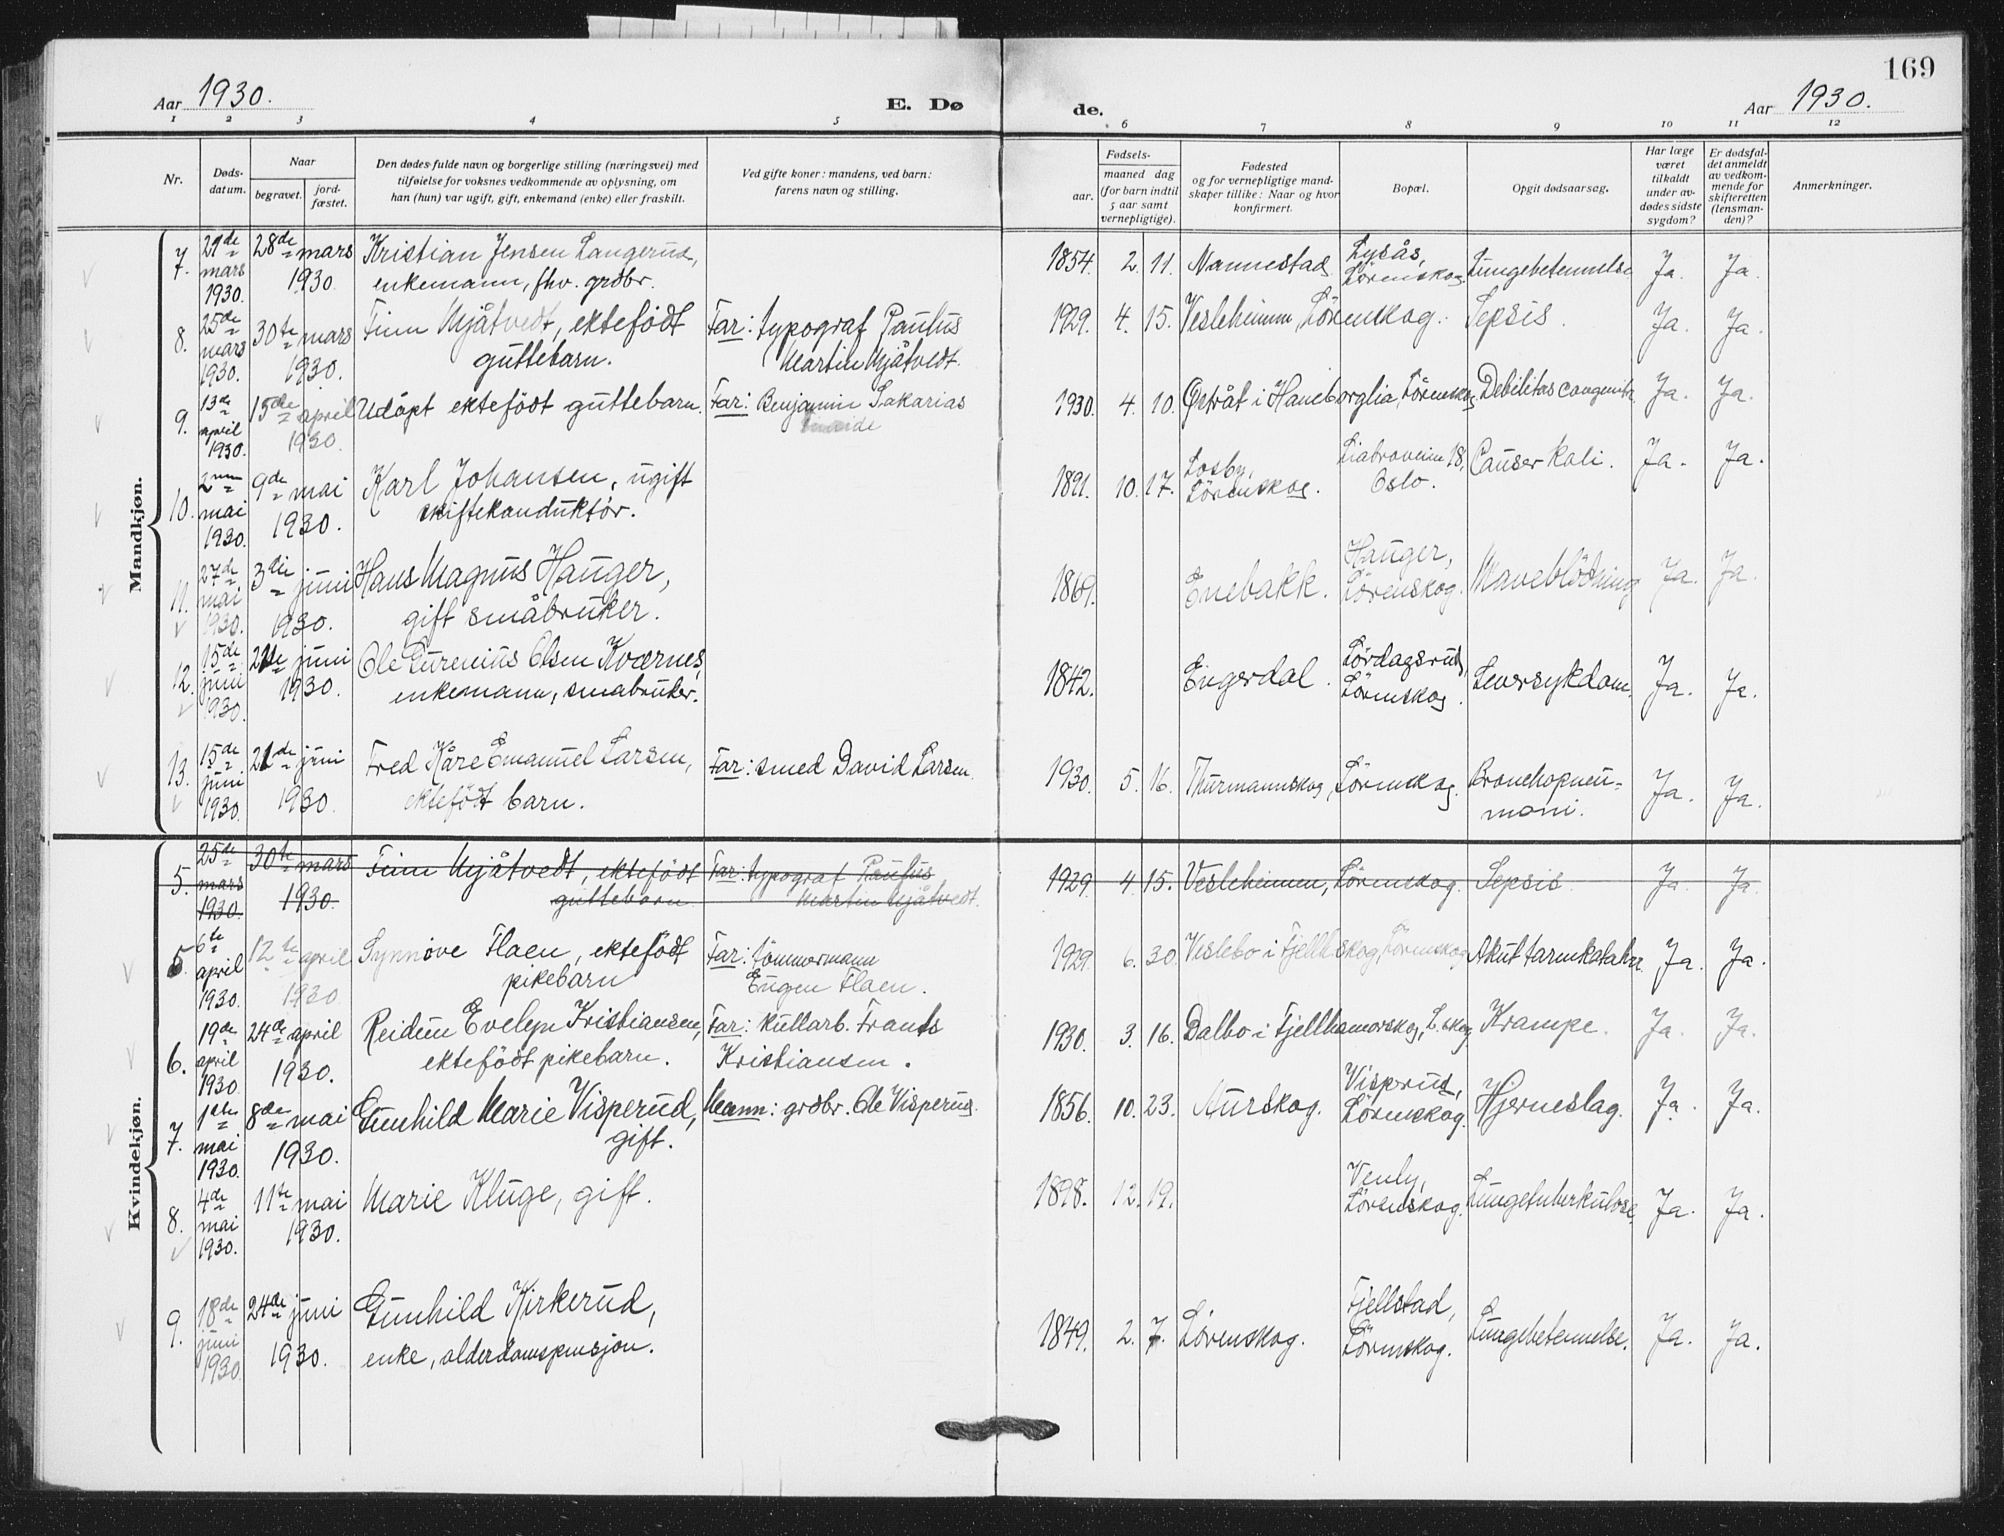 169
Aar 1930. E. Dø de. Aar 1930.
1 2 3 4 5 6 7 8 9 10 11 12
Nr. Døds-datum. Naar begravet. jord-fæstet. Den dødes fulde navn og borgerlige stilling (næringsvei) med tilføielse for voksnes vedkommende av oplysning, om han (hun) var ugift, gift, enkemand (enke) eller fraskilt. Ved gifte koner: mandens, ved barn: farens navn og stilling. Fødsels- aar. maaned dag (for barn indtil 5 aar samt vernepligtige). Fødested og for vernepligtige mand-skaper tillike: Naar og hvor konfirmert. Bopæl. Opgit dødsaarsag. Har læge været tilkaldt under av-dødes sidste sygdom? Er dødsfal-det anmeldt av vedkom-mende for skifteretten (lensman-den)? Anmerkninger.
Mandkjøn.
7. 21de mars 1930. 28de mars 1930 Kristian Jensen Langerud, enkemann, fhv. grdbr. 1854. 2. 11. Nannestad Lysås, Lörenskog. Lungebetennelse Ja. Ja.
8. 25de mars 1930. 30te mars 1930. Finn Mjåtvedt, ektefödt guttebarn. Far: typograf Paulus Martin Mjåtvedt. 1929. 4. 15. Vesleheimen, Lörenskog. Sepsis. Ja. Ja.
9. 13de april 1930. 15de april 1930 Udöpt ektefödt guttebarn. Far: Benjamin Sakarias 1930. 4. 10. Östråt i Haneborglia, Lörenskog Debilitas congenita Ja. Ja.
10. 2nen mai 1930. 9de mai 1930. Karl Johansen, ugift skiftekonduktör. 1891. 10. 17. Losby, Lörenskog. Liabroveien 18, Oslo. Causer Kali. Ja. Ja.
11. 27de mai 1930. 3die juni 1930. Hans Magnus Hauger, gift småbruker. 1869. Enebakk. Hauger, Lörenskog. Maveblödning Ja. Ja.
12. 15de juni 1930. 21de juni 1930. Ole Eurenius Olsen Kværnes, enkemann, småbruker. 1842. Engerdal. Lördagsrud, Lörenskog. Leversykdom. Ja. Ja.
13. 15de juni 1930. 21de juni 1930. Fred Kåre Emanuel Larsen, ektefödt barn. Far: smed David Larsen. 1930. 5. 16. Thurmannskog, Lörenskog. Bronchopneu=moni. Ja. Ja.
Kvindekjøn.
5. 25de mars 1930. 30te mars 1930. Finn Mjåtvedt, ektefödt guttebarn Far: typograf Paulus Martin Mjåtvedt. 1929. 4. 15. Vesleheimen, Lörenskog. Sepsis Ja. Ja.
5. 6te april 1930. 12te april 1930 Synnöve Flaen, ektefödt pikebarn Far: tömmermann Eugen Flaen. 1929. 6. 30. Veslebo i Fjellh.skog, Lörenskog Akut tarmkatahrr. Ja. Ja.
6. 19de april 1930. 24de april 1930. Reidun Evelyn Kristiansen, ektefödt pikebarn. Far: kullarb. Frants Kristiansen. 1930. 3. 16. Dalbo i Fjellhamarskog, L.skog Krampe. Ja. Ja.
7. 1ste mai 1930. 8de mai 1930. Gunhild Marie Visperud, gift. Mann: grdbr. Ole Visperud. 1856. 10. 23. Aurskog. Visperud, Lörenskog. Hjerneslag. Ja. Ja.
8. 4de mai 1930. 11te mai 1930. Marie Kluge, gift. 1898. 12. 19. Venly, Lörenskog. Lungetuberkulose. Ja. Ja.
9. 18de juni 1930. 24de juni 1930. Gunhild Kirkerud, enke, alderdomspensjon. 1849. 2. 7. Lörenskog. Fjellstad, Lörenskog. Lungebetennelse. Ja. Ja.